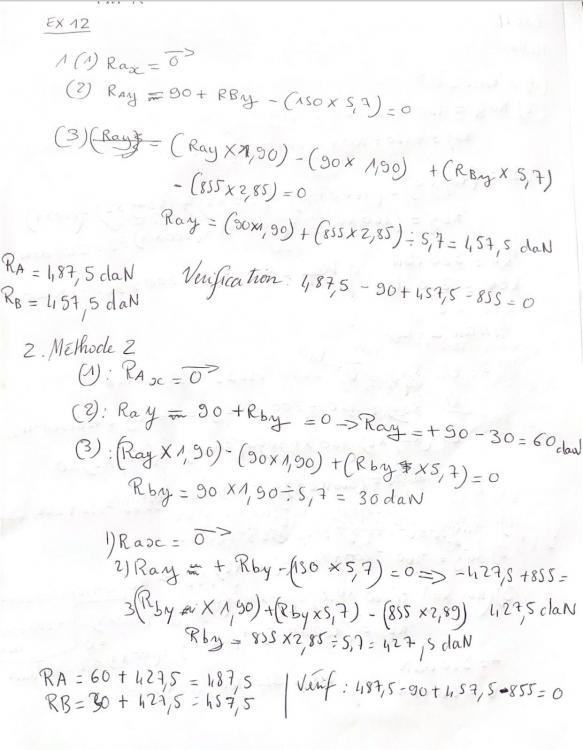 EX 12
1 (1) Rax = 0
(2) RAy = 90 + RBy - (150 x 5,7) = 0
(3) (Ray) = (Ray x 1,90) - (90 x 1,90) + (RBy x 5,7)
- (855 x 2,85) = 0
Ray = (90x1,90) + (855 x 2,85) ÷ 5,7 = 457,5 daN
RA = 487,5 daN
RB = 457,5 daN
Verification : 487,5 - 90 + 457,5 - 855 = 0
2. Méthode 2
(1) : RAx = 0
(2) : Ray = 90 + Rby = 0 → Ray = +90 - 30 = 60 daN
(3) : (Ray x 1,90) - (90x1,90) + (Rby x 5,7) = 0
Rby = 90 x 1,90 ÷ 5,7 = 30 daN
1) Rax = 0
2) Ray = + Rby - (150 x 5,7) = 0 => -427,5 + 855 =
427,5 daN
3 (Rby x 1,90) + (Rby x 5,7) - (855 x 2,89)
Rby = 855 x 2,85 ÷ 5,7 = 427,5 daN
RA = 60 + 427,5 = 487,5
RB = 30 + 427,5 = 457,5
Vérif : 487,5 - 90 + 457,5 - 855 = 0